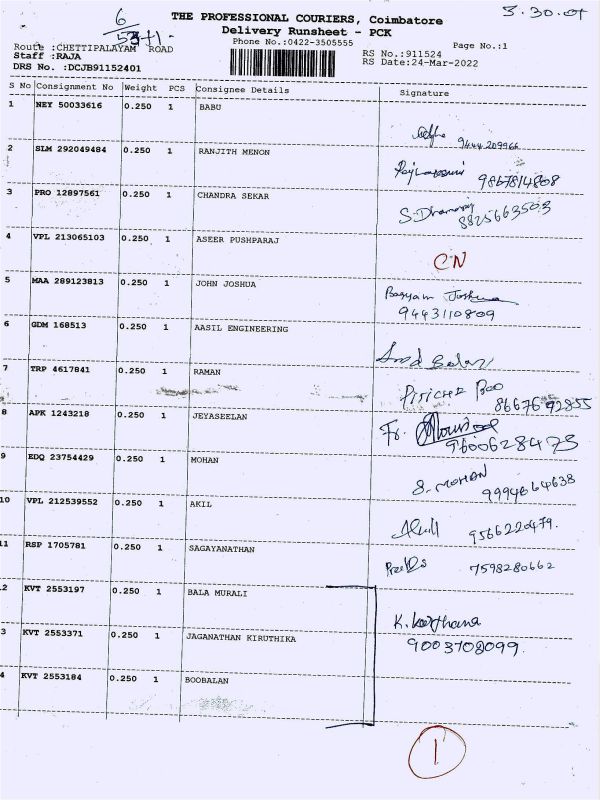 6
3.30.01
THE PROFESSIONAL COURIERS, Coimbatore
Delivery Runsheet - PCK
Phone No.:0422-3505555
Page No.:1
Route :CHETTIPALAYAM ROAD
RS No.:911524
Staff :RAJA
RS Date:24-Mar-2022
DRS No. :DCJB91152401
S No Consignment No Weight PCS Consignee Details Signature
1 NEY 50033616 0.250 1 BABU
9444209966
2 SLM 292049484 0.250 1 RANJITH MENON
9867814808
3 PRO 12897561 0.250 1 CHANDRA SEKAR
8825663503
4 VPL 213065103 0.250 1 ASEER PUSHPARAJ
CN
5 MAA 289123813 0.250 1 JOHN JOSHUA
Bagyam Joshua
9443110809
6 GDM 168513 0.250 1 AASIL ENGINEERING
7 TRP 4617841 0.250 1 RAMAN
8667692855
8 APK 1243218 0.250 1 JEYASEELAN
Fr.
9600628473
9 EDQ 23754429 0.250 1 MOHAN
S. MOHAN
9994664638
10 VPL 212539552 0.250 1 AKIL
Akil
9566220479.
11 RSP 1705781 0.250 1 SAGAYANATHAN
7598280662
2 KVT 2553197 0.250 1 BALA MURALI
K. Keerthana
3 KVT 2553371 0.250 1 JAGANATHAN KIRUTHIKA
9003708099.
4 KVT 2553184 0.250 1 BOOBALAN
1